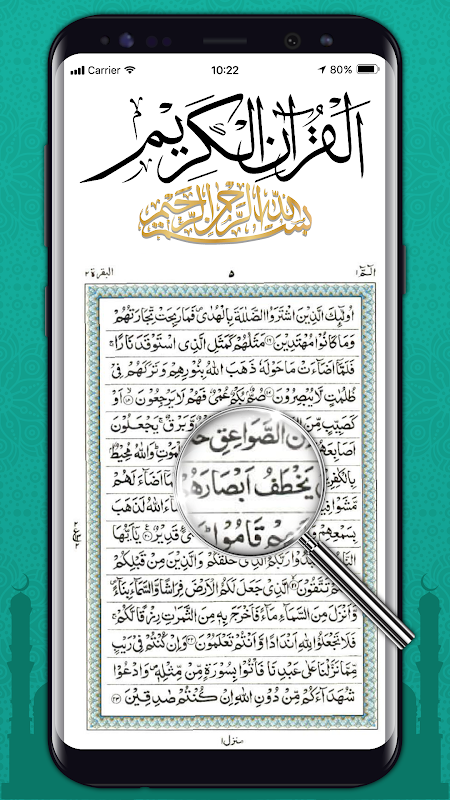 Carrier 10:22 80%
القرآن الكريم
بسم الله الرحمن الرحيم
الٓمّٓ ١ ٥ البقرة ٢
اُولٰٓئِكَ الَّذِيْنَ اشْتَرَوُا الضَّلٰلَةَ بِالْهُدٰى فَمَا رَبِحَتْ تِّجَارَتُهُمْ
وَمَا كَانُوْا مُهْتَدِيْنَ ﴿١٦﴾ مَثَلُهُمْ كَمَثَلِ الَّذِى اسْتَوْقَدَ نَارًا
فَلَمَّاۤ اَضَآءَتْ مَا حَوْلَهٗ ذَهَبَ اللّٰهُ بِنُوْرِهِمْ وَتَرَكَهُمْ فِىْ
ظُلُمٰتٍ لَّا يُبْصِرُوْنَ ﴿١٧﴾ صُمٌّۢ بُكْمٌ عُمْىٌ فَهُمْ لَا يَرْجِعُوْنَ ﴿١٨﴾ اَوْ
كَصَيِّبٍ مِّنَ وَّبَرْقٌ يَجْعَلُوْنَ
اَصَابِعَهُمْ الْمَوْتِ وَاللّٰهُ مُحِيْطٌۢ
مِّنَ الصَّوَاعِقِ
بِالْكٰفِرِيْنَ اَضَآءَ لَهُمْ
يَخْطَفُ اَبْصَارَهُمْ
مَّشَوْا شَآءَ اللّٰهُ لَذَهَبَ
قَامُوْا
بِسَمْعِهِمْ قَدِيْرٌ ﴿٢٠﴾ يٰٓاَيُّهَا
النَّاسُ اعْبُدُوْا رَبَّكُمُ الَّذِىْ خَلَقَكُمْ وَالَّذِيْنَ مِنْ قَبْلِكُمْ
لَعَلَّكُمْ تَتَّقُوْنَ ﴿٢١﴾ الَّذِىْ جَعَلَ لَكُمُ الْاَرْضَ فِرَاشًا وَّالسَّمَآءَ بِنَآءً
وَّاَنْزَلَ مِنَ السَّمَآءِ مَآءً فَاَخْرَجَ بِهٖ مِنَ الثَّمَرٰتِ رِزْقًا لَّكُمْ
فَلَا تَجْعَلُوْا لِلّٰهِ اَنْدَادًا وَّاَنْتُمْ تَعْلَمُوْنَ ﴿٢٢﴾ وَاِنْ كُنْتُمْ فِىْ رَيْبٍ
مِّمَّا نَزَّلْنَا عَلٰى عَبْدِنَا فَاْتُوْا بِسُوْرَةٍ مِّنْ مِّثْلِهٖ وَادْعُوْا
شُهَدَآءَكُمْ مِّنْ دُوْنِ اللّٰهِ اِنْ كُنْتُمْ صٰدِقِيْنَ ﴿٢٣﴾
منزل ١